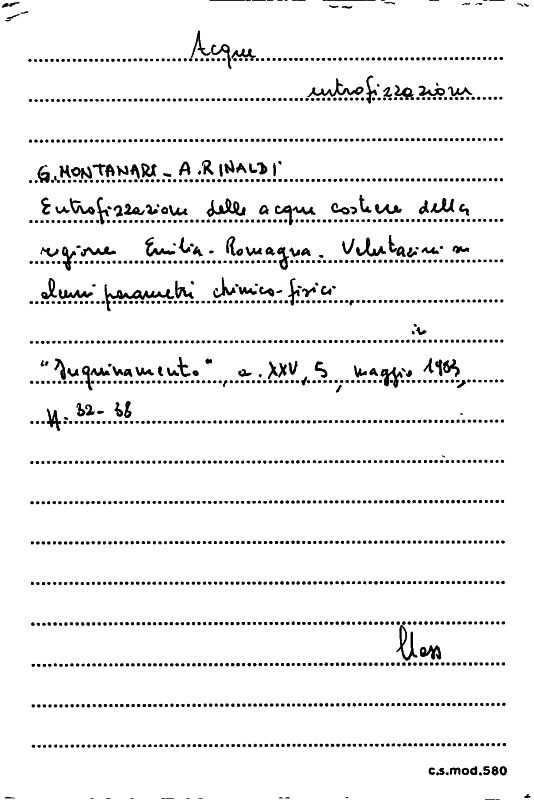 Acque
eutrofizzazione
G. MONTANARI - A. RINALDI
Eutrofizzazione delle acque costiere della
regione Emilia-Romagna. Valutazioni su
alcuni parametri chimico-fisici,
in
"Inquinamento", a. XXV, 5, maggio 1983,
pp. 32-38
c.s.mod.580